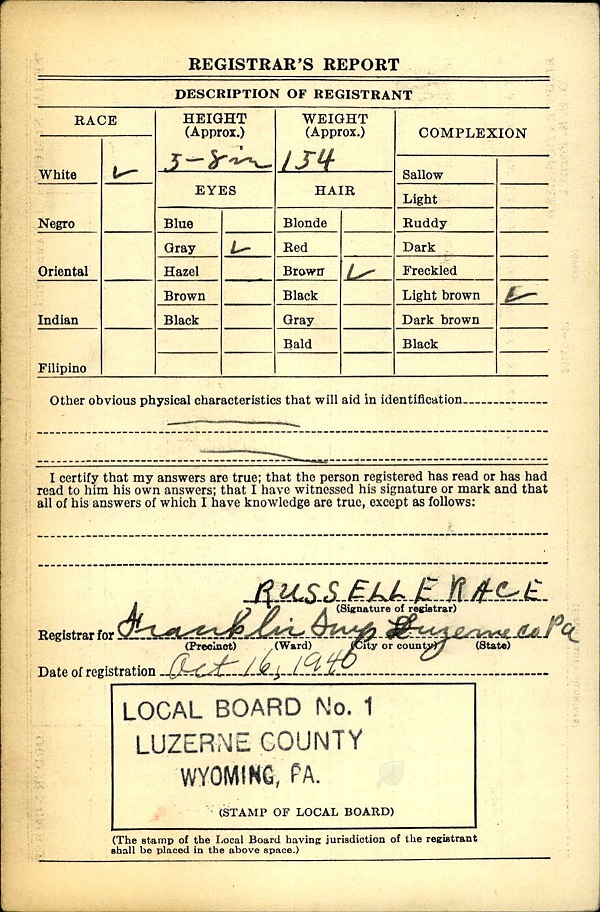 REGISTRAR'S REPORT
DESCRIPTION OF REGISTRANT
RACE
HEIGHT
(Approx.)
WEIGHT
(Approx.)
COMPLEXION
5-8in
154
White ✓
EYES
HAIR
Sallow
Light
Negro
Blue
Blonde
Ruddy
Gray ✓
Red
Dark
Oriental
Hazel
Brown ✓
Freckled
Brown
Black
Light brown ✓
Indian
Black
Gray
Dark brown
Bald
Black
Filipino
Other obvious physical characteristics that will aid in identification
I certify that my answers are true; that the person registered has read or has had
read to him his own answers; that I have witnessed his signature or mark and that
all of his answers of which I have knowledge are true, except as follows:
RUSSELL E RACE
(Signature of registrar)
Registrar for Franklin Twp Luzerne co Pa
(Precinct) (Ward) (City or county) (State)
Date of registration Oct 16, 1940
LOCAL BOARD No. 1
LUZERNE COUNTY
WYOMING, PA.
(STAMP OF LOCAL BOARD)
(The stamp of the Local Board having jurisdiction of the registrant
shall be placed in the above space.)